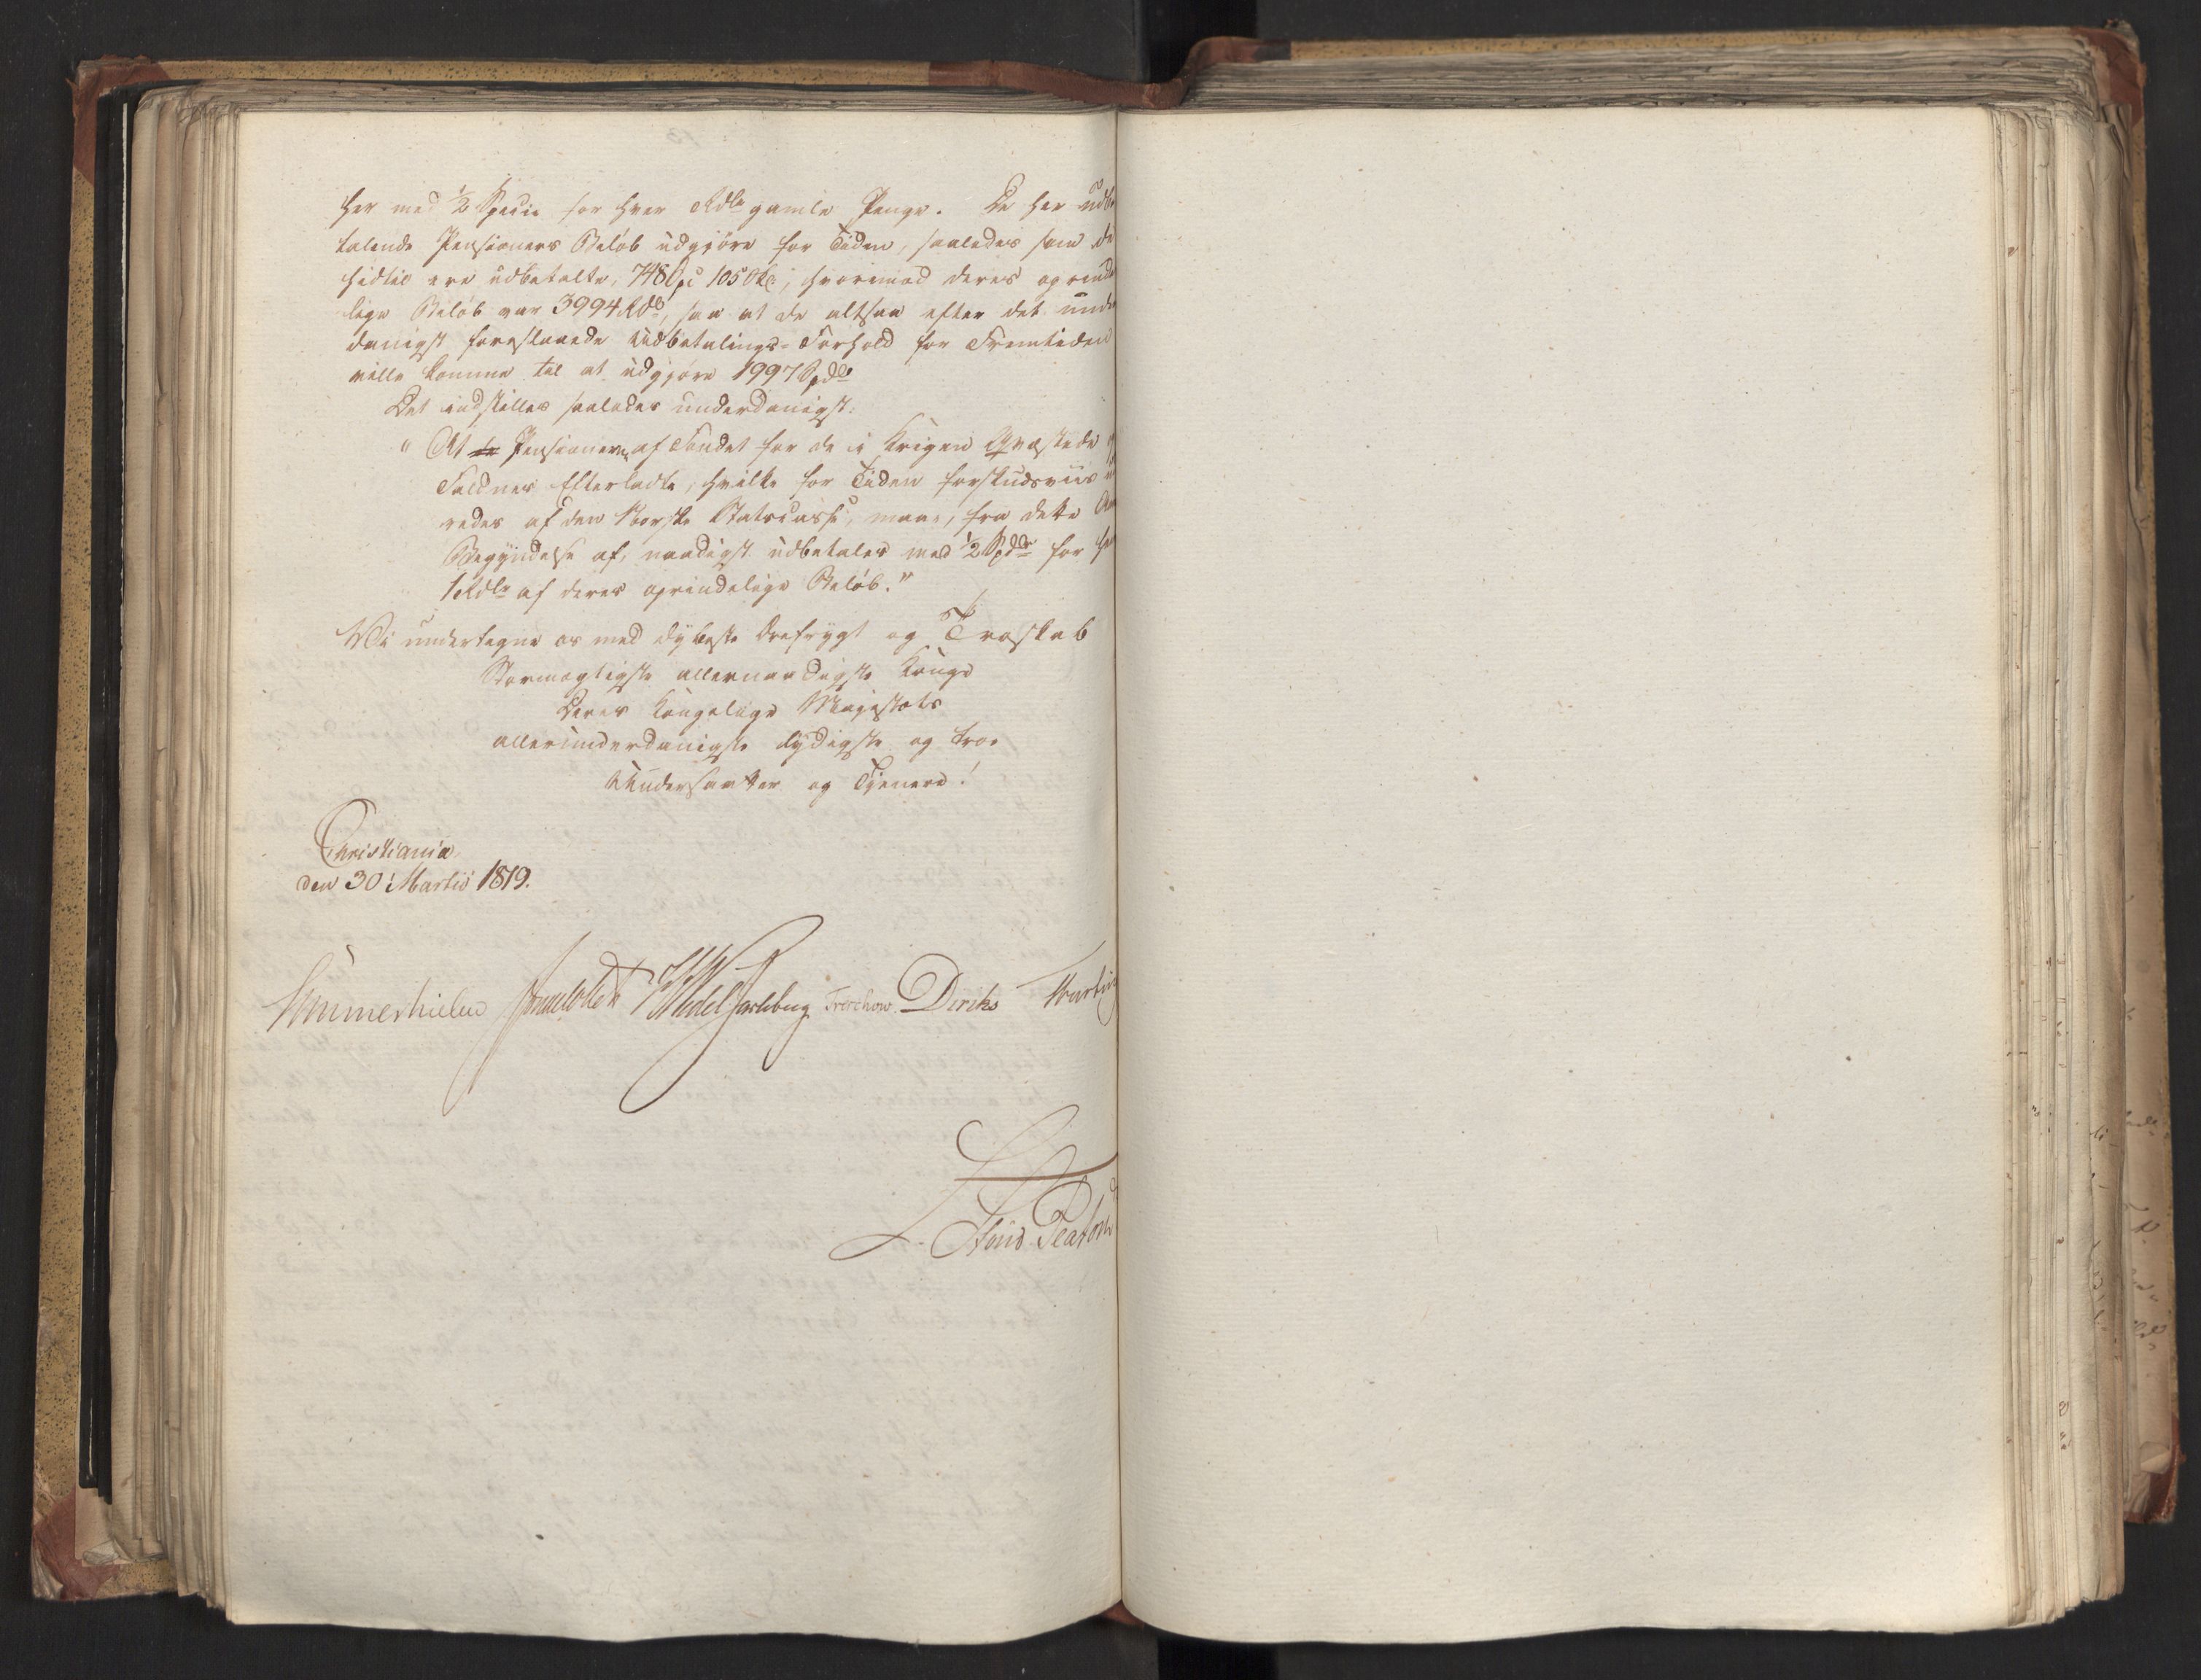 her med ½ Specie for hver Rdlr gamle Penge. De her udbe
talende Pensioners Beløb udgjøre for Tiden, saaledes som de
hidtil ere udbetalte, 748 Spd 105 Sk, hvorimod deres oprinde
lige Beløb var 3994 Rdlr, saa at de altsaa efter det under
danigst foreslaaede Udbetalings-Forhold for Fremtiden
ville komme til at udgjøre 1997 Spdlr
Det indstilles saaledes underdanigst:
" At Pensionerne af Fondet for de i Krigen Qvæstede og
Faldnes Efterladte, hvilke for Tiden forskudsviis
redes af den Norske Statscasse, maae, fra dette Aars
Begyndelse af, naadigst udbetales med ½ Spdlr for hver
1 Rdlr af deres oprindelige Beløb."
Vi undertegne os med dybeste Ærefrygt og Troskab
Stormægtigste allernaadigste Konge
Deres Kongelige Majestæts
allerunderdanigste lydigste og troe
Undersaatter og Tjenere!
Christiania
den 30 Martii 1819.
Sommerhielm Hansteen Wedel Jarlsberg Treschow Diriks Motzfeldt